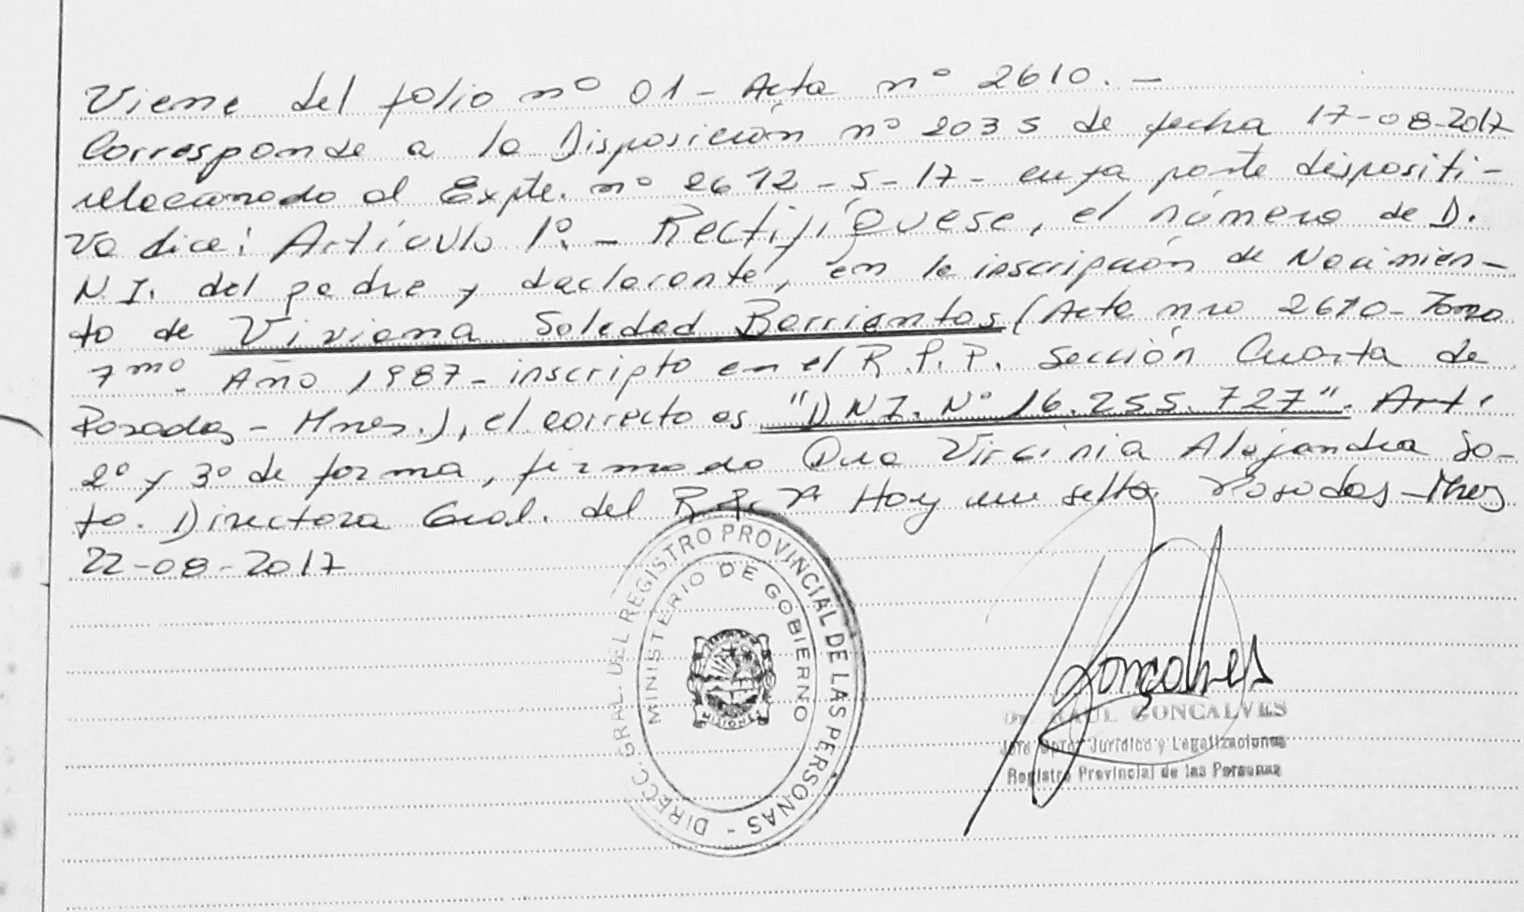 Viene del folio nº 01 - Acta nº 2610. -
Corresponde a la Disposición nº 2035 de fecha 17-08-2017
relacionado al Expte. nº 2612 - S - 17 - cuya parte dispositi-
va dice: Artículo 1º. - Rectifíquese, el número de D.
N.I. del padre y declarante, en la inscripción de Nacimien-
to de Viviana Soledad Barrientos (Acta nro 2610 - Tomo
7mo. Año 1987 - inscripto en el R.P.P. Sección Cuarta de
Posadas - Mnes.), el correcto es "DNI. Nº 16.255.727". Art.
2º y 3º de forma, firmado Dra Virginia Alejandra So-
to. Directora Gral. del R.P. Hoy Posadas - Mnes
22-08-2017
DIRECC. GRAL. DEL REGISTRO PROVINCIAL DE LAS PERSONAS -
MINISTERIO DE GOBIERNO
MISIONES
Gonçalves
Dr. RAUL GONCALVES
Jefe Dpto. Jurídico y Legalizaciones
Registro Provincial de las Personas